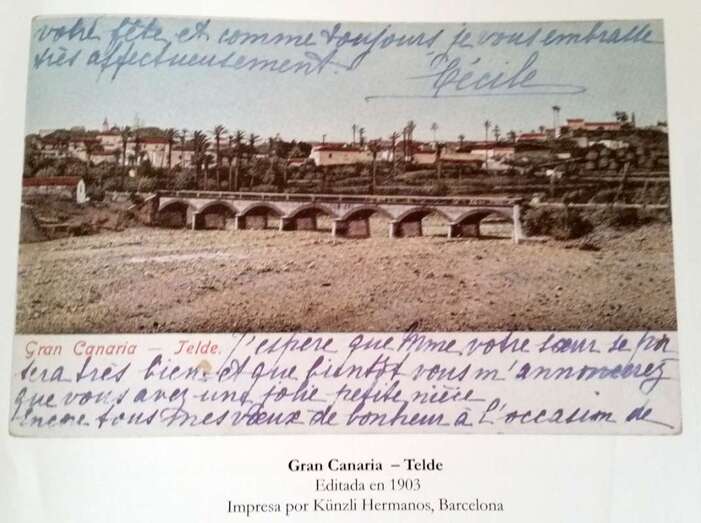 votre fête, et comme toujours je vous embrasse
très affectueusement.
Cécile
Gran Canaria — Telde.
J'espère que Mme votre sœur se por
sera très bien et que bientôt vous m'annoncerez
que vous avez une jolie petite nièce
Encore tous mes vœux de bonheur à l'occasion de
Gran Canaria – Telde
Editada en 1903
Impresa por Künzli Hermanos, Barcelona